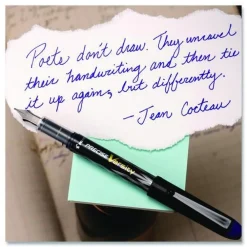 Poets don't draw. They unravel
their handwriting and then tie
it up again, but differently.
—Jean Cocteau
Varsity